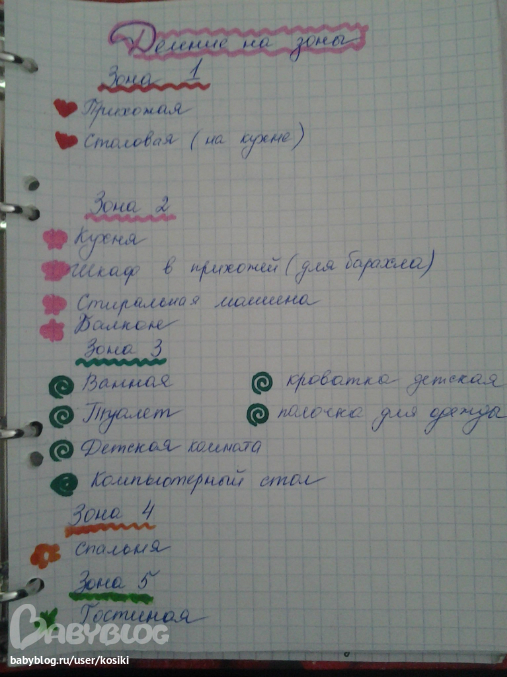 Деление на зоны
Зона 1
Прихожая
Столовая (на кухне)
Зона 2
Кухня
Шкаф в прихожей (для барахла)
Стиральная машина
Балкон
Зона 3
Ванная
кроватка детская
Туалет
палочка для одежды
Детская комната
Компьютерный стол
Зона 4
Спальня
Зона 5
Гостиная
BABYBLOG
babyblog.ru/user/kosiki